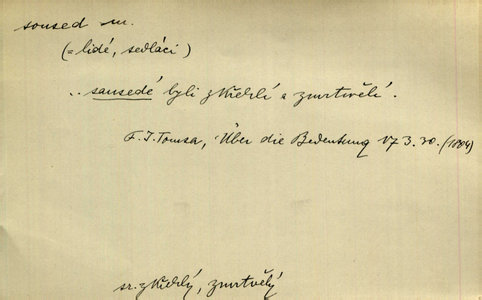 soused m.
(= lidé, sedláci)
.. sausedé byli zkřehlí a zmrtvělí.
F. J. Tomsa, Über die Bedeutung 3. 30. (1804)
sr. zkřehlý, zmrtvělý